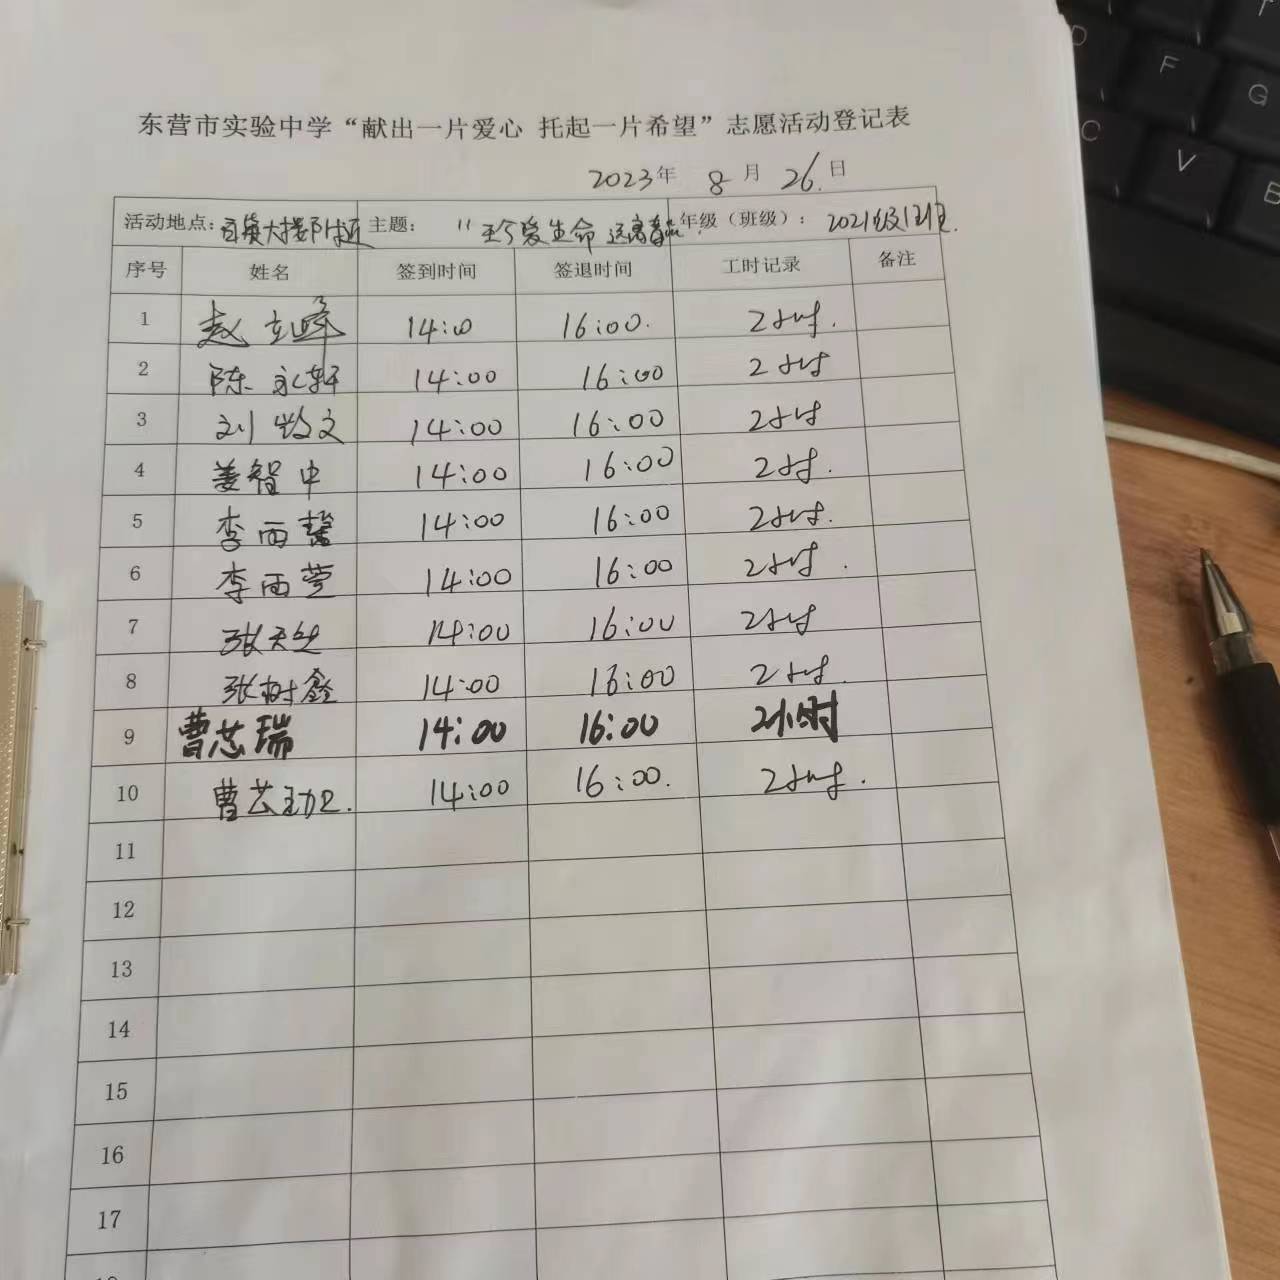 东营市实验中学“献出一片爱心 托起一片希望”志愿活动登记表
2023年 8 月 26 日
活动地点: 百货大楼附近 主题: “珍爱生命 远离毒品 年级（班级）: 2021级12班.
序号 姓名 签到时间 签退时间 工时记录 备注
1 赵立峰 14:0 16:00. 2小时.
2 陈永轩 14:00 16:00 2小时
3 刘文 14:00 16:00 2小时
4 姜智中 14:00 16:00 2小时.
5 李雨馨 14:00 16:00 2小时.
6 李雨萱 14:00 16:00 2小时.
7 张天 14:00 16:00 2小时
8 张树鑫 14:00 16:00 2小时.
9 曹芯瑞 14:00 16:00 2小时
10 曹芸 14:00 16:00. 2小时.
11
12
13
14
15
16
17
D
F
G
C
V
B